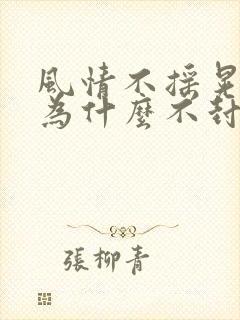 風情不搖晃
為什麼不封
張柳青